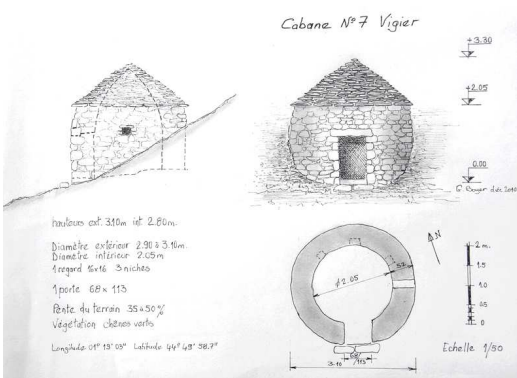 Cabane N°7 Vigier
+3.30
+2.05
0.00
G. Boyer déc 2010
hauteurs ext. 3.10m int 2.80m.
Diamètre extérieur 2.90 à 3.10m.
Diamètre intérieur 2.05m
1 regard 16x16 3 niches
1 porte 68 x 113
Pente du terrain 35 à 50%
Végétation chênes verts
Longitude 01° 13' 03" Latitude 44° 49' 58.7"
N
ø 2.05
52
68
113
3.10
2 m.
1.5
1.0
0.5
0
Echelle 1/50